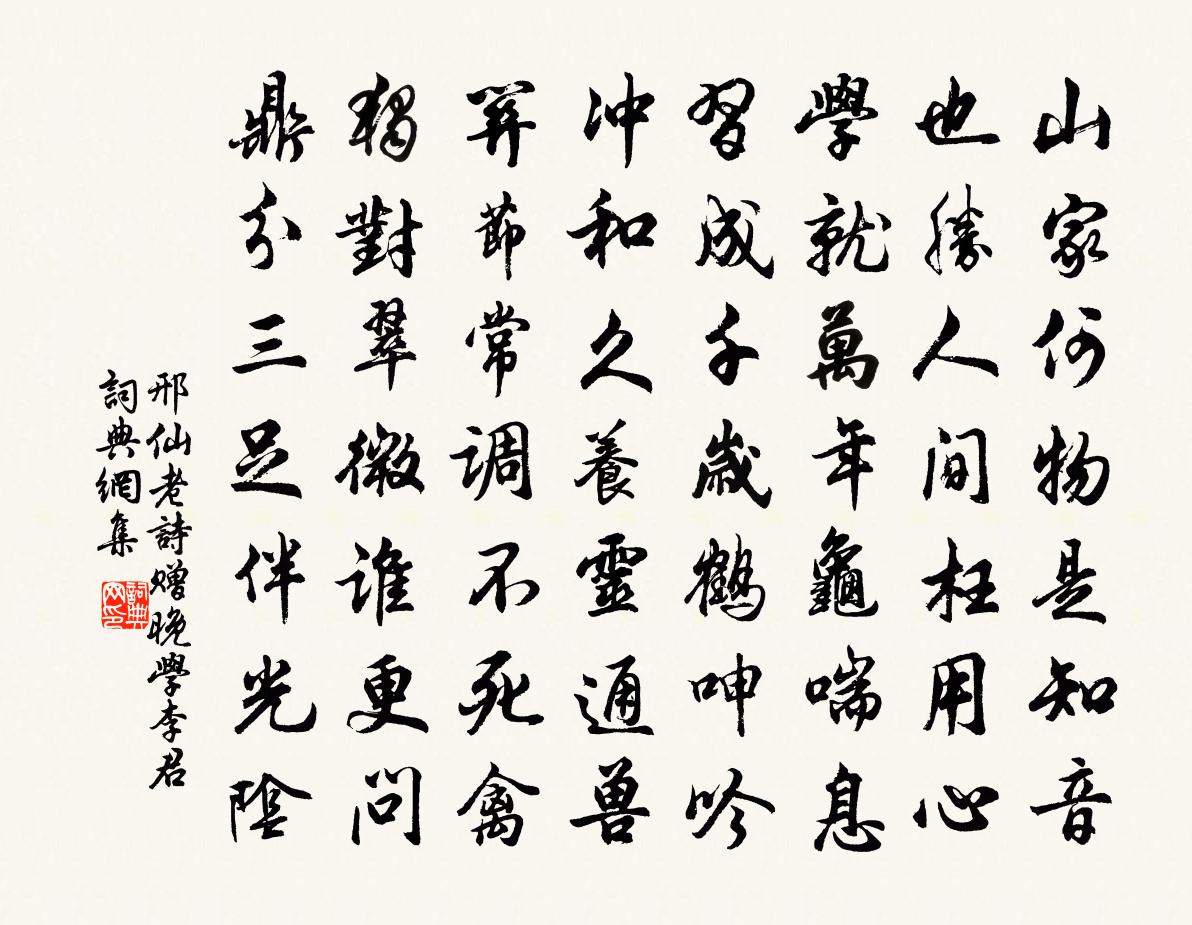 山家何物是知音
也勝人間枉用心
學就萬年龜喘息
習成千歲鶴呻吟
冲和久養靈通兽
筭節常调不死禽
獨對翠微誰更問
鼎分三足伴光陰
邢仙老詩赠晚學李君
詞典網集
詞典網印